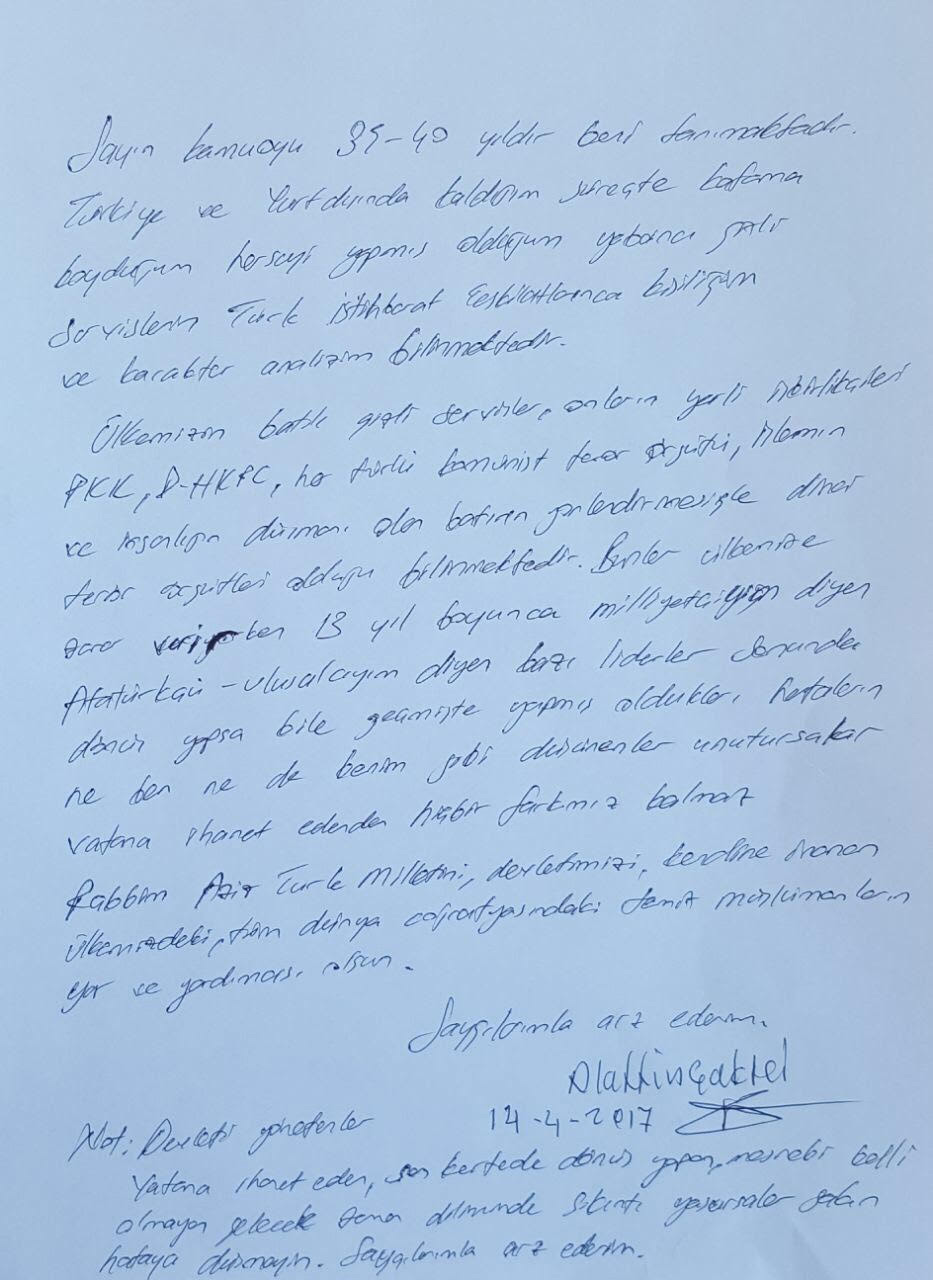 Sayın kamuoyu 35-40 yıldır beni tanımaktadır.
Türkiye ve Yurtdışında kaldığım süreçte kafama
koyduğum herşeyi yapmış olduğum yabancı gizli
servislerin Türk istihbarat teşkilatlarınca kişiliğim
ve karakter analizim bilinmektedir.
Ülkemizin batılı gizli servisler, onların yerli işbirlikçileri
PKK, D-HKPC, her türlü komünist terör örgütü, İslamın
ve insanlığın düşmanı olan batının yönlendirmesiyle dinci
terör örgütleri olduğu bilinmektedir. Bunlar ülkemize
zarar veriyorken 13 yıl boyunca milliyetçiyim diyen
Atatürkçü - ulusalcıyım diyen bazı liderler sonunda
dönüş yapsa bile geçmişte yapmış oldukları hataların
ne ben ne de benim gibi düşünenler unutursakar
vatana ihanet edenden hiçbir farkımız kalmaz
Rabbim Aziz Türk Milletini, devletimizi, kendine inanan
ülkemizdeki, tüm dünya coğrafyasındaki temiz müslümanların
yar ve yardımcısı olsun.
Saygılarımla arz ederim.
Alattin Çakıcı
14-4-2017
Not: Devleti yönetenler
Vatana ihanet eden, son kertede dönüş yapan, mesnebi belli
olmayan gelecek zaman diliminde sıkıntı yaşarsalar sakın
hataya düşmeyin. Saygılarımla arz ederim.